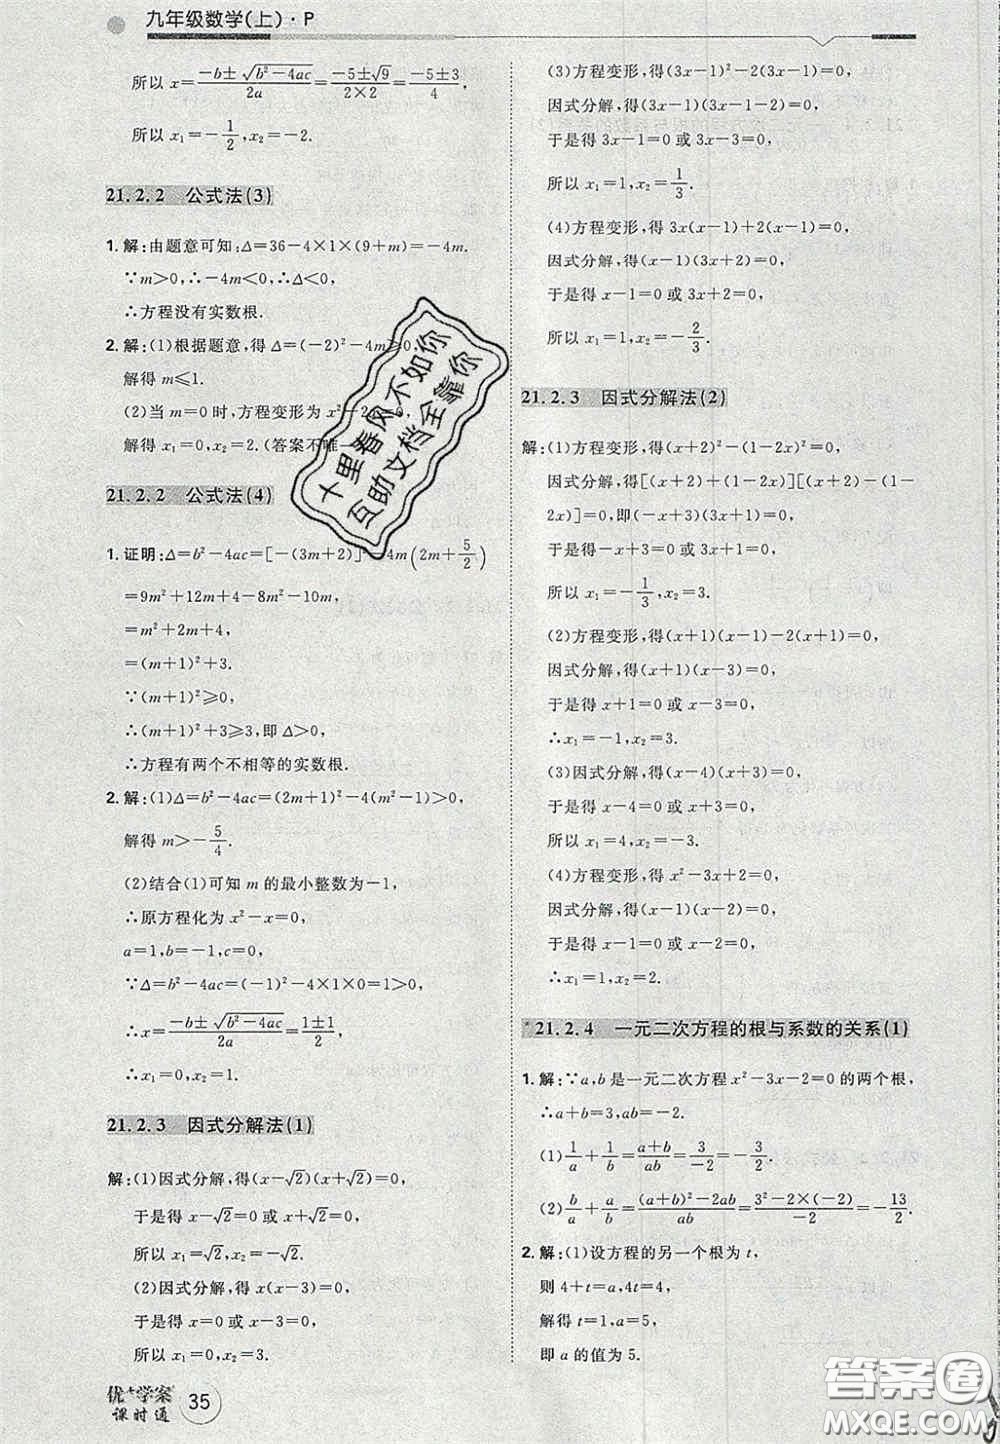 九年级数学(上)·P
所以 x=(-b±√(b²-4ac))/2a=(-5±√9)/(2×2)=(-5±3)/4,
所以 x₁=-1/2,x₂=-2.
21.2.2 公式法(3)
1.解:由题意可知:Δ=36-4×1×(9+m)=-4m.
∵m>0,∴-4m<0,∴Δ<0,
∴方程没有实数根.
2.解:(1)根据题意,得 Δ=(-2)²-4m≥0,
解得 m≤1.
(2)当 m=0时,方程变形为 x²-2x=0,
解得 x₁=0,x₂=2.(答案不唯一)
21.2.2 公式法(4)
1.证明:Δ=b²-4ac=[-(3m+2)]²-4m(2m+5/2)
=9m²+12m+4-8m²-10m,
=m²+2m+4,
=(m+1)²+3.
∵(m+1)²≥0,
∴(m+1)²+3≥3,即 Δ>0,
∴方程有两个不相等的实数根.
2.解:(1)Δ=b²-4ac=(2m+1)²-4(m²-1)>0,
解得 m>-5/4.
(2)结合(1)可知 m 的最小整数为-1,
∴原方程化为 x²-x=0,
a=1,b=-1,c=0,
∵Δ=b²-4ac=(-1)²-4×1×0=1>0,
∴x=(-b±√(b²-4ac))/2a=(1±1)/2,
∴x₁=0,x₂=1.
21.2.3 因式分解法(1)
解:(1)因式分解,得(x-√2)(x+√2)=0,
于是得 x-√2=0 或 x+√2=0,
所以 x₁=√2,x₂=-√2.
(2)因式分解,得 x(x-3)=0,
于是得 x=0 或 x-3=0,
所以 x₁=0,x₂=3.
(3)方程变形,得(3x-1)²-2(3x-1)=0,
因式分解,得(3x-1)(3x-1-2)=0,
于是得 3x-1=0 或 3x-3=0,
所以 x₁=1,x₂=1/3.
(4)方程变形,得 3x(x-1)+2(x-1)=0,
因式分解,得(x-1)(3x+2)=0,
于是得 x-1=0 或 3x+2=0,
所以 x₁=1,x₂=-2/3.
21.2.3 因式分解法(2)
解:(1)方程变形,得(x+2)²-(1-2x)²=0,
因式分解,得[(x+2)+(1-2x)][(x+2)-(1-
2x)]=0,即(-x+3)(3x+1)=0,
于是得-x+3=0 或 3x+1=0,
所以 x₁=-1/3,x₂=3.
(2)方程变形,得(x+1)(x-1)-2(x+1)=0,
因式分解,得(x+1)(x-3)=0,
于是得 x+1=0 或 x-3=0,
∴x₁=-1,x₂=3.
(3)因式分解,得(x-4)(x+3)=0,
于是得 x-4=0 或 x+3=0,
所以 x₁=4,x₂=-3.
(4)方程变形,得 x²-3x+2=0,
因式分解,得(x-1)(x-2)=0,
于是得 x-1=0 或 x-2=0,
∴x₁=1,x₂=2.
*21.2.4 一元二次方程的根与系数的关系(1)
1.解:∵a,b 是一元二次方程 x²-3x-2=0 的两个根,
∴a+b=3,ab=-2.
(1)1/a+1/b=(a+b)/ab=3/-2=-3/2,
(2)b/a+a/b=((a+b)²-2ab)/ab=(3²-2×(-2))/-2=-13/2.
2.解:(1)设方程的另一个根为 t,
则 4+t=a,4t=4,
解得 t=1,a=5,
即 a 的值为 5.
十里春风不如你
互助文档全靠你
优+学案
课时通
35
答案圈
MXQE.COM